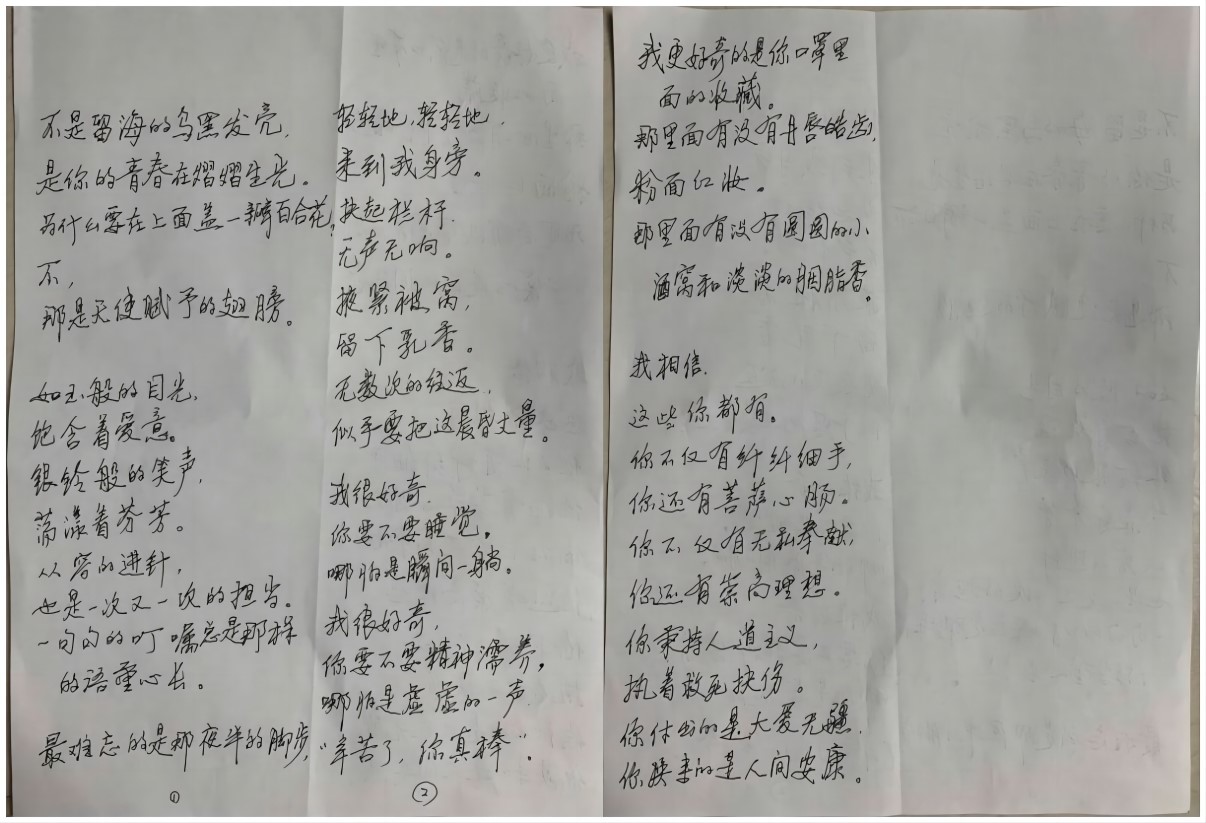 不是留海的乌黑发亮,
是你的青春在熠熠生光。
为什么要在上面盖一瓣百合花,
不,
那是天使赋予的翅膀。
如玉般的目光,
饱含着爱意。
银铃般的笑声,
荡漾着芬芳。
从容的进针,
也是一次又一次的担当。
一句句的叮嘱总是那样
的语重心长。
最难忘的是那夜半的脚步,
①
轻轻地,轻轻地,
来到我身旁。
扶起栏杆
无声无响。
掖紧被窝,
留下乳香。
无数次的往返,
似乎要把这晨昏丈量。
我很好奇
你要不要睡觉,
哪怕是瞬间一躺。
我很好奇,
你要不要精神濡养,
哪怕是虚虚的一声
“辛苦了,你真棒”。
②
我更好奇的是你口罩里
面的收藏。
那里面有没有丹唇皓齿,
粉面红妆。
那里面有没有圆圆的小
酒窝和淡淡的胭脂香。
我相信,
这些你都有。
你不仅有纤纤细手,
你还有菩萨心肠。
你不仅有无私奉献,
你还有崇高理想。
你秉持人道主义,
执着救死扶伤。
你付出的是大爱无疆,
你换来的是人间安康。